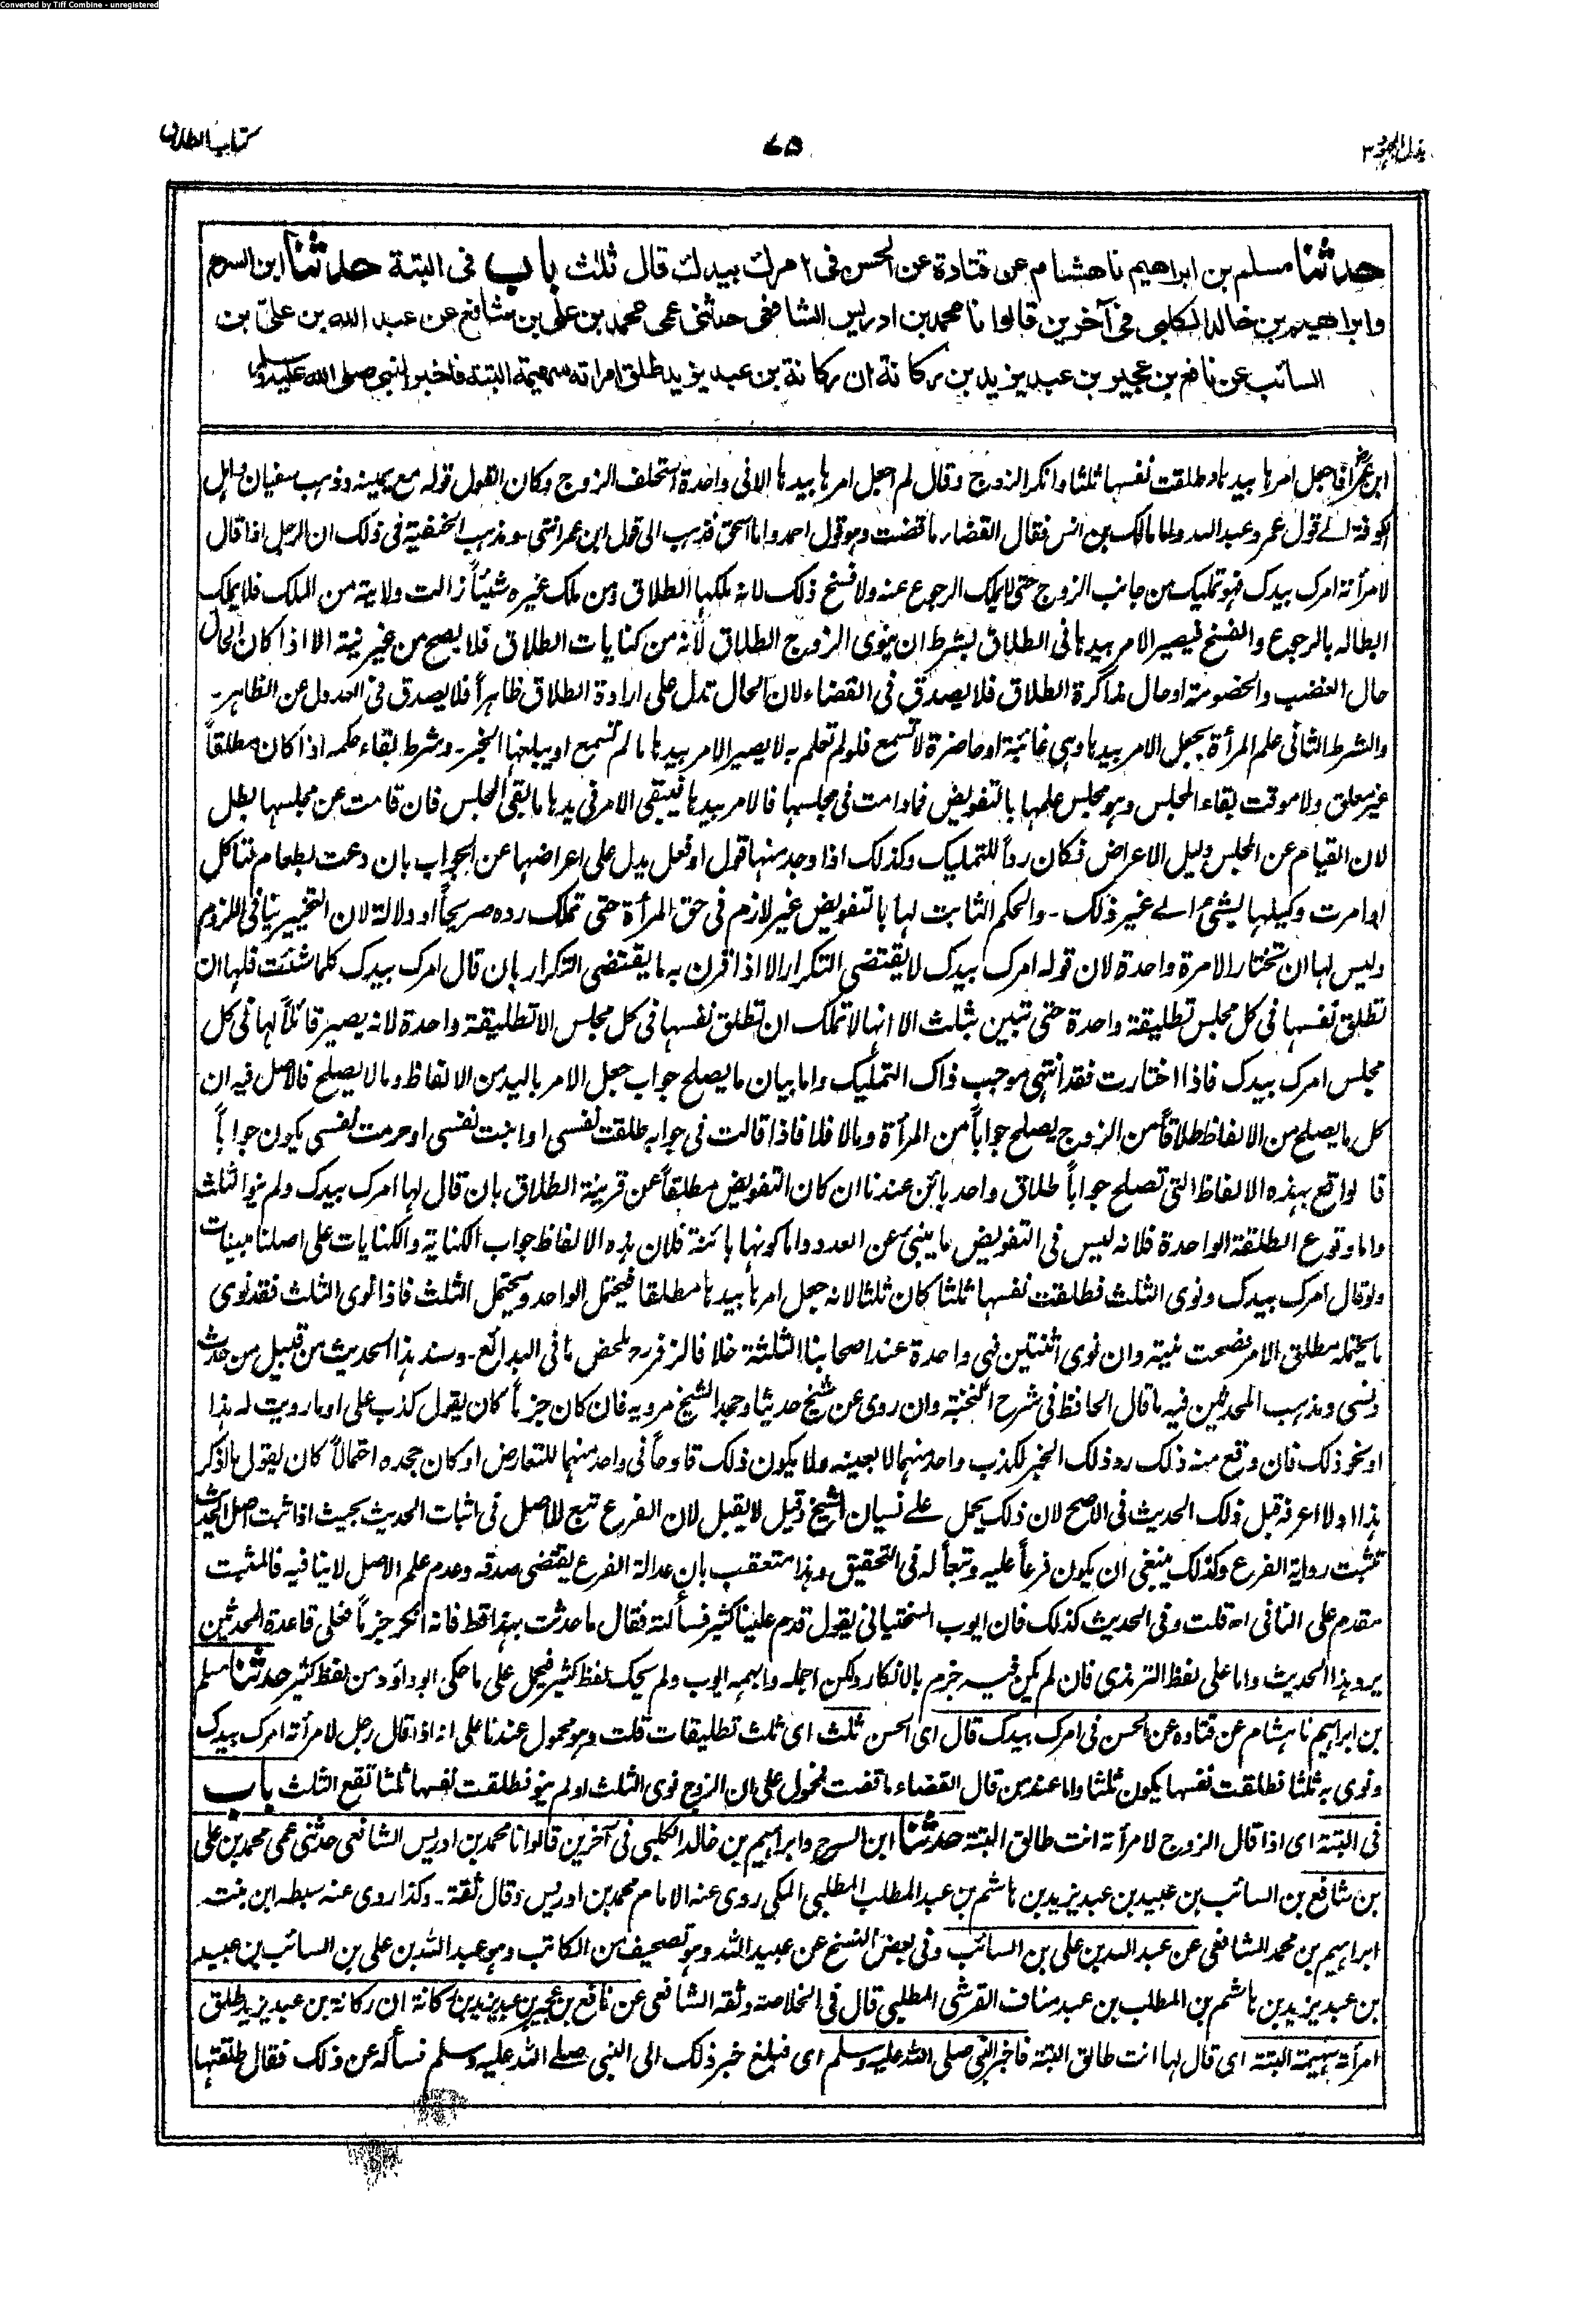 Converted by Tiff Combine - unregistered
بذل المجهود ٣
٧٥
كتاب الطلاق
حدثنا مسلم بن ابراهيم نا هشام عن قتادة عن الحسن فى امرك بيدك قال ثلث باب فى البتة حدثنا ابن السرح
وابراهيم بن خالد الكلبى فى آخرين قالوا نا محمد بن ادريس الشافعى حدثنى عمى محمد بن على بن شافع عن عبد الله بن على بن
السائب عن نافع بن عجير بن عبد يزيد بن ركانة ان ركانة بن عبد يزيد طلق امراته سهيمة البتة فاخبر النبى صلى الله عليه وسلم
ابن عمر اذا جعل امرها بيدها وطلقت نفسها ثلثا وانكر الزوج وقال لم اجعل امرها بيدها الا فى واحدة استحلف الزوج وكان القول قوله مع يمينه وذهب سفيان واهل
الكوفة الى قول عمر وعبد الله واما مالك بن انس فقال القضاء ما قضت وهو قول احمد واما اسحق فذهب الى قول ابن عمر انتهى - ومذهب الحنفية فى ذلك ان الرجل اذا قال
لامرأته امرك بيدك فهو تمليك من جانب الزوج حتى لا يملك الرجوع عنه ولا فسخ ذلك لانه ملكها الطلاق ومن ملك غيره شيئاً زالت ولايته من الملك فلا يملك
ابطاله بالرجوع والفسخ فيصير الامر بيدها فى الطلاق بشرط ان ينوى الزوج الطلاق لأنه من كنايات الطلاق فلا يصح من غير نية الا اذا كان الحال
حال الغضب والخصومة او حال مذاكرة الطلاق فلا يصدق فى القضاء لان الحال تدل على ارادة الطلاق ظاهراً فلا يصدق فى العدول عن الظاهر -
والشرط الثانى علم المرأة بجعل الامر بيدها وهى غائبة او حاضرة لا تسمع فلو لم تعلم به لا يصير الامر بيدها ما لم تسمع او يبلغها الخبر - وشرط بقاء حكمه اذا كان مطلقاً
غير معلق ولا موقت بقاء المجلس وهو مجلس علمها بالتفويض فما دامت فى مجلسها فالامر بيدها فيبقى الامر فى يدها ما بقى المجلس فان قامت عن مجلسها بطل
لان القيام عن المجلس دليل الاعراض فكان رداً للتمليك وكذلك اذا وجد منها قول او فعل يدل على اعراضها عن الجواب بان دعت بطعام لتأكل
او امرت وكيلها بشئ الى غير ذلك - والحكم الثابت لها بالتفويض غير لازم فى حق المرأة حتى تملك رده صريحاً او دلالة لان التخيير ينافى اللزوم
وليس لها ان تختار الا مرة واحدة لان قوله امرك بيدك لا يقتضى التكرار الا اذا قرن به ما يقتضى التكرار بان قال امرك بيدك كلما شئت فلها ان
تطلق نفسها فى كل مجلس تطليقة واحدة حتى تبين بثلث الا انها لا تملك ان تطلق نفسها فى كل مجلس الا تطليقة واحدة لانه يصير قائلاً لها فى كل
مجلس امرك بيدك فاذا اختارت فقد انتهى موجب ذاك التمليك واما بيان ما يصلح جواب جعل الامر باليد من الالفاظ وما لا يصلح فالاصل فيه ان
كل ما يصلح من الالفاظ طلاقاً من الزوج يصلح جواباً من المرأة وما لا فلا فاذا قالت فى جوابه طلقت نفسى او ابنت نفسى او حرمت نفسى يكون جواباً
فالواقع بهذه الالفاظ التى تصلح جواباً طلاق واحد بائن عندنا ان كان التفويض مطلقاً عن قرينة الطلاق بان قال لها امرك بيدك ولم ينو الثلث
واما وقوع الطلقة الواحدة فلانه ليس فى التفويض ما ينبئ عن العدد واما كونها بائنة فلان هذه الالفاظ جواب الكناية والكنايات على اصلنا مبينات
ولو قال امرك بيدك ونوى الثلث فطلقت نفسها ثلثا كان ثلثا لانه جعل امرها بيدها مطلقا فيحتمل الواحد ويحتمل الثلث فاذا نوى الثلث فقد نوى
ما يحتمله مطلق الامر فصحت نيته وان نوى اثنتين فهى واحدة عند اصحابنا الثلثة خلافا لزفر رح ملخص ما فى البدائع - وسند هذا الحديث من قبيل من حدث
ونسى ومذهب المحدثين فيه ما قال الحافظ فى شرح النخبة وان روى عن شيخ حديثا وجحد الشيخ مرويه فان كان جزماً كأن يقول كذب على او ما رويت له هذا
او نحو ذلك فان وقع منه ذلك رد ذلك الخبر لكذب واحد منهما لا بعينه ولا يكون ذلك قادحاً فى واحد منهما للتعارض او كان جحده احتمالاً كان يقول ما اذكر
هذا او لا اعرفه قبل ذلك الحديث فى الاصح لان ذلك يحمل على نسيان الشيخ وقيل لا يقبل لان الفرع تبع للاصل فى اثبات الحديث بحيث اذا ثبت اصل الحديث
تثبت رواية الفرع وكذلك ينبغى ان يكون فرعاً عليه وتبعاً له فى التحقيق وهذا متعقب بان عدالة الفرع يقتضى صدقه وعدم علم الاصل لا ينافيه فالمثبت
مقدم على النافى اه قلت وفى الحديث كذلك فان ايوب السختيانى يقول قدم علينا كثير فسألته فقال ما حدثت بهذا قط فانه انكر جزماً فعلى قاعدة المحدثين
يرد هذا الحديث واما على لفظ الترمذى فان لم يكن فيه جزم بالانكار ولكن اجمله وابهمه ايوب ولم يحك لفظ كثير فيحمل على ما حكى ابو داؤد من لفظ كثير حدثنا مسلم
بن ابراهيم نا هشام عن قتاده عن الحسن فى امرك بيدك قال اى الحسن ثلث اى ثلث تطليقات قلت وهو محمول عندنا على انه اذا قال رجل لامرأته امرك بيدك
ونوى به ثلثا فطلقت نفسها يكون ثلثا واما عند من قال القضاء ما قضت فمحمول على ان الزوج نوى الثلث او لم ينو فطلقت نفسها ثلثا تقع الثلث باب
فى البتة اى اذا قال الزوج لامرأته انت طالق البتة حدثنا ابن السرح وابراهيم بن خالد الكلبى فى آخرين قالوا نا محمد بن ادريس الشافعى حدثنى عمى محمد بن على
بن شافع بن السائب بن عبيد بن عبد يزيد بن هاشم بن عبد المطلب المطلبى المكى روى عنه الامام محمد بن ادريس وقال ثقة - وكذا روى عنه سبطه ابن بنت
ابراهيم بن محمد الشافعى عن عبد الله بن على بن السائب وفى بعض النسخ عن عبيد الله وهو تصحيف من الكاتب وهو عبد الله بن على بن السائب بن عبيد
ابن عبد يزيد بن هاشم بن المطلب بن عبد مناف القرشى المطلبى قال فى الخلاصة وثقه الشافعى عن نافع بن عجير بن عبد يزيد بن ركانة ان ركانة بن عبد يزيد طلق
امرأته سهيمة البتة اى قال لها انت طالق البتة فاخبر النبى صلى الله عليه وسلم اى فبلغ خبر ذلك الى النبى صلى الله عليه وسلم فسأله عن ذلك فقال طلقتها